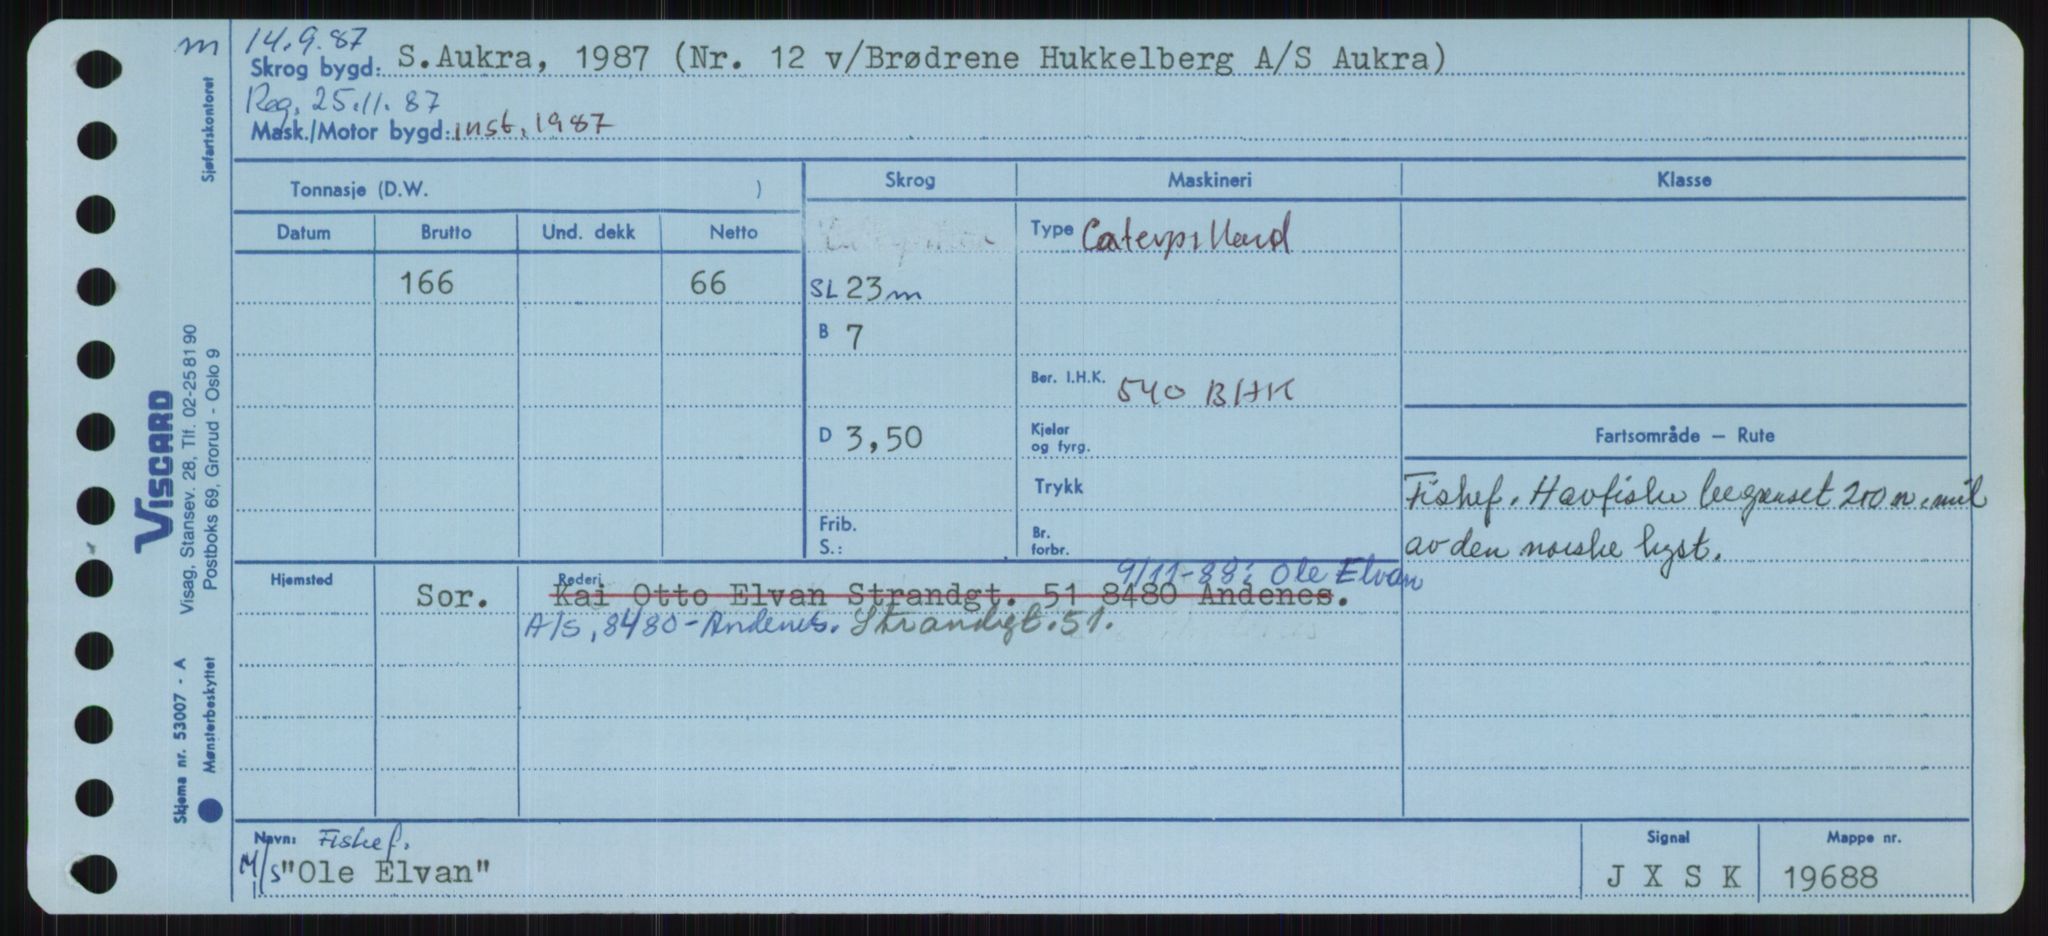 m 14.9.87
Skrog bygd: S.Aukra, 1987 (Nr. 12 v/Brødrene Hukkelberg A/S Aukra)
Reg. 25.11.87
Mask./Motor bygd: inst. 1987
Sjøfartskontoret
Tonnasje (D.W. )
Skrog
Maskineri
Klasse
Datum
Brutto
Und. dekk
Netto
Type Caterpillard
166
66
SL 23m
B 7
Ber. I.H.K. 540 BHK
D 3,50
Kjelar
og fyrg.
Fartsområde — Rute
Trykk
Fiskef. Havfiske begrenset 200 n.mil
av den norske kyst.
Frib.
S.:
Br.
forbr.
Hjemsted
Rederi
9/11-88: Ole Elvan
Sor. Kai Otto Elvan Strandgt. 51 8480 Andenes.
A/S, 8480-Andenes. Strandgt. 51.
Navn: Fiskef.
M/S "Ole Elvan"
Signal
J X S K
Mappe nr.
19688
VISCARD
Visag, Stansev. 28, Tlf. 02-25 81 90
Postboks 69, Grorud - Oslo 9
Skjema nr. 53007 - A
Mønsterbeskyttet